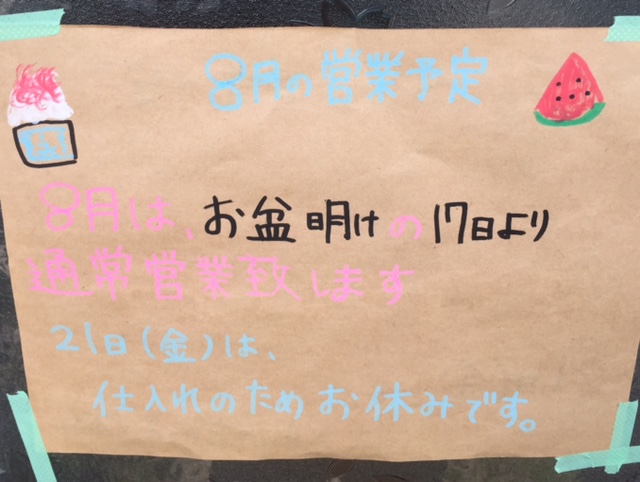 8月の営業予定
8月は、お盆明けの17日より
通常営業致します
21日(金)は、
仕入れのためお休みです。